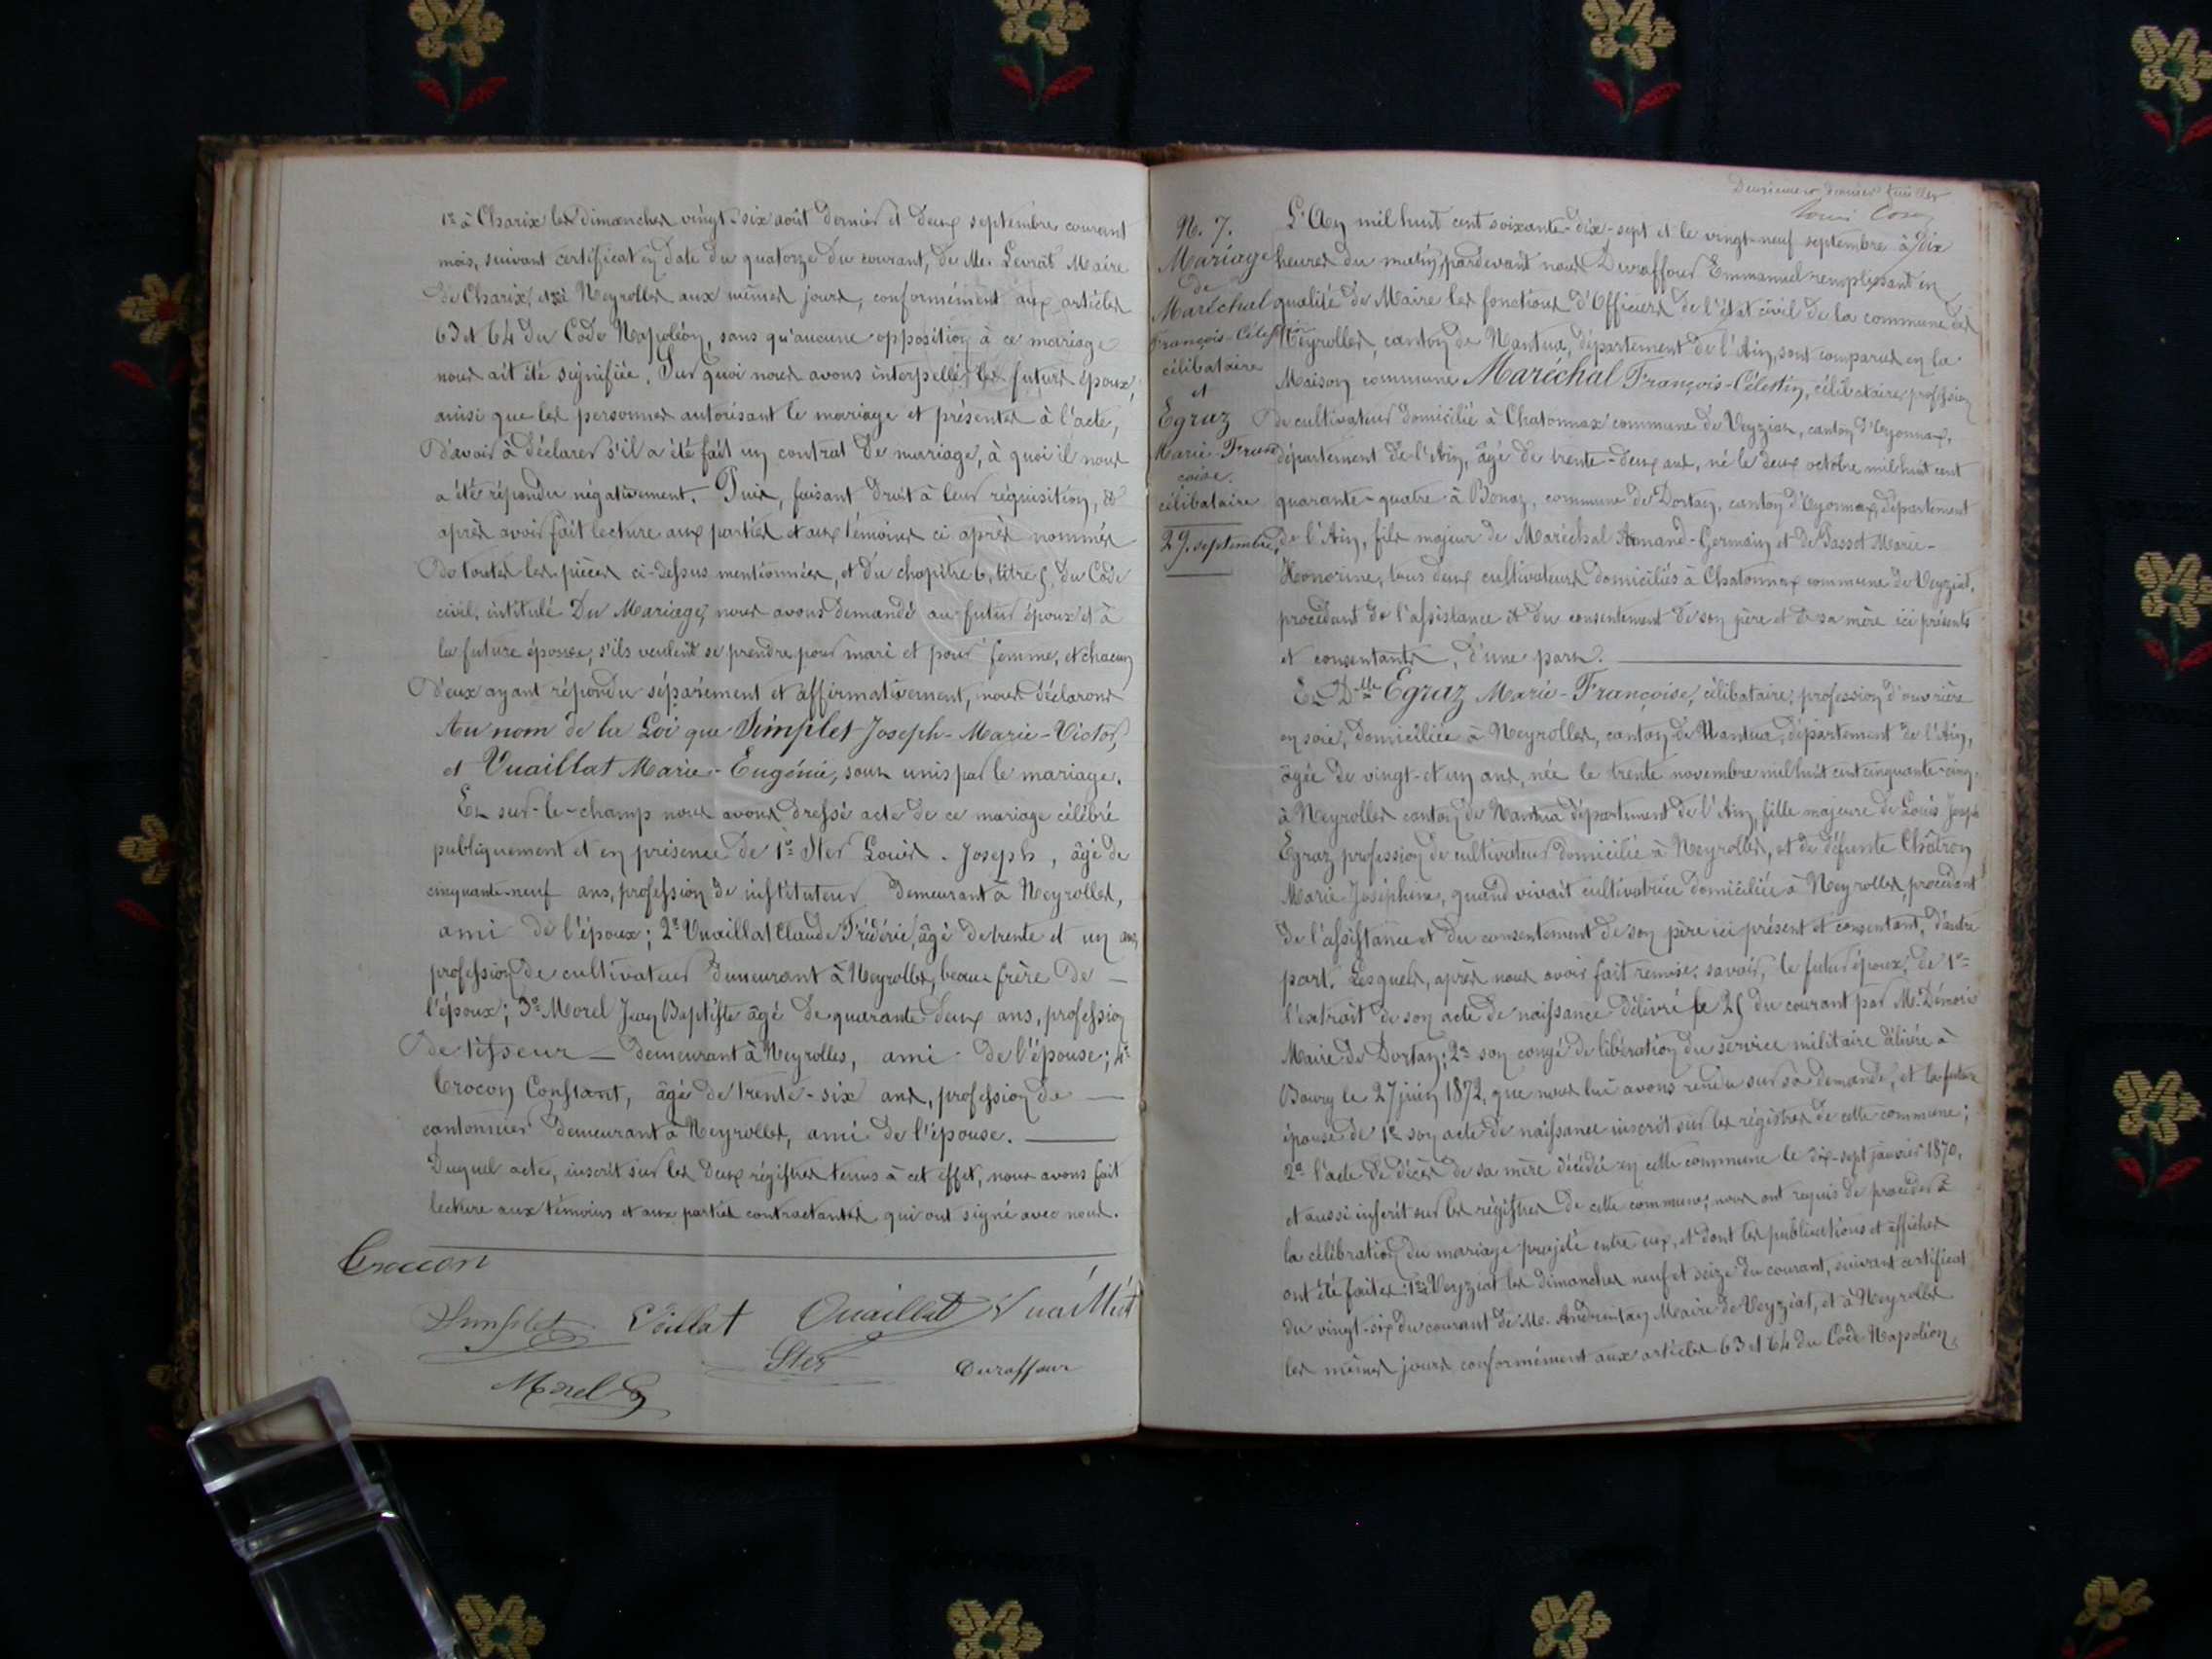 1º à Charix les dimanches vingt-six août dernier et deux septembre courant
mois, suivant certificat en date du quatorze du courant, de Mr. Levrat Maire
de Charix, et 2º à Neyrolles aux mêmes jours, conformément aux articles
63 et 64 du Code Napoléon, sans qu'aucune opposition à ce mariage
nous ait été signifiée. Sur quoi nous avons interpellé les futurs époux,
ainsi que les personnes autorisant le mariage et présentes à l'acte,
d'avoir à déclarer s'il a été fait un contrat de mariage, à quoi il nous
a été répondu négativement. Puis, faisant droit à leur réquisition, &
après avoir fait lecture aux parties et aux témoins ci après nommés
de toutes les pièces ci-dessus mentionnées, et du chapitre 6, titre 5, du Code
civil, intitulé Du Mariage, nous avons demandé au futur époux et à
la future épouse, s'ils veulent se prendre pour mari et pour femme, et chacun
d'eux ayant répondu séparément et affirmativement, nous déclarons
Au nom de la Loi que Simplet Joseph-Marie-Victor,
et Vuaillat Marie-Eugénie, sont unis par le mariage.
Et sur-le-champ nous avons dressé acte de ce mariage célébré
publiquement et en présence de 1º Ster Louis-Joseph, âgé de
cinquante-neuf ans, profession de instituteur demeurant à Neyrolles,
ami de l'époux; 2º Vuaillat Claude Frédéric âgé de trente et un ans,
profession de cultivateur demeurant à Neyrolles, beau frère de
l'époux; 3º Morel Jean Baptiste âgé de quarante deux ans, profession
de tisseur demeurant à Neyrolles, ami de l'épouse; 4º
Crocon Constant, âgé de trente-six ans, profession de
cantonnier demeurant à Neyrolles, ami de l'épouse.
Duquel acte, inscrit sur les deux régistres tenus à cet effet, nous avons fait
lecture aux témoins et aux parties contractantes qui ont signé avec nous.
Crocon
Simplet Vuaillat Vuaillat
Ster Duraffour
Morel
Deuxième et dernier feuillet
Louis
N. 7.
Mariage
de
Maréchal
François-Célestin
célibataire
et
Egraz
Marie-Fran
çoise.
célibataire
29 septembre.
L'An mil huit cent soixante-dix-sept et le vingt-neuf septembre à dix
heures du matin, pardevant nous Duraffour Emmanuel remplissant en
qualité de Maire les fonctions d'Officier de l'état civil de la commune des
Neyrolles, canton de Nantua, département de l'Ain, sont comparus en la
Maison commune Maréchal François-Célestin, célibataire, profession
de cultivateur domicilié à Chatonnax commune de Veyziat, canton d'Oyonnax,
département de l'Ain, âgé de trente-deux ans, né le deux octobre mil huit cent
quarante-quatre à Bonaz, commune de Dortan, canton d'Oyonnax, département
de l'Ain, fils majeur de Maréchal Armand-Germain et de Passot Marie-
Honorine, tous deux cultivateurs domiciliés à Chatonnax commune de Veyziat,
procédant de l'assistance et du consentement de son père et de sa mère ici présents
et consentants, d'une part.
Et Dlle Egraz Marie-Françoise, célibataire, profession d'ouvrière
en soie, domiciliée à Neyrolles, canton de Nantua, département de l'Ain,
âgée de vingt-et-un ans, née le trente novembre mil huit cent cinquante-cinq
à Neyrolles canton de Nantua département de l'Ain, fille majeure de Louis Joseph
Egraz, profession de cultivateur domicilié à Neyrolles, et de défunte Châtron
Marie Josephine, quand vivait cultivatrice domiciliée à Neyrolles, procédant
de l'assistance et du consentement de son père ici présent et consentant, d'autre
part. Lesquels, après nous avoir fait remise, savoir, le futur époux, de 1º
l'extrait de son acte de naissance délivré le 25 du courant par M. Démoré
Maire de Dortan; 2º son congé de libération du service militaire délivré à
Bourg le 27 juin 1872, que nous lui avons rendu sur sa demande, et la future
épouse de 1º son acte de naissance inscrit sur les régistres de cette commune;
2º l'acte de décès de sa mère décédée en cette commune le dix-sept janvier 1870,
et aussi inscrit sur les régistres de cette commune, nous ont requis de procéder à
la célébration du mariage projeté entre eux, et dont les publications et affiches
ont été faites: 1º à Veyziat les dimanches neuf et seize du courant, suivant certificat
du vingt-six du courant de Mr. Maire de Veyziat, et à Neyrolles
les mêmes jours conformément aux articles 63 et 64 du Code Napoléon,